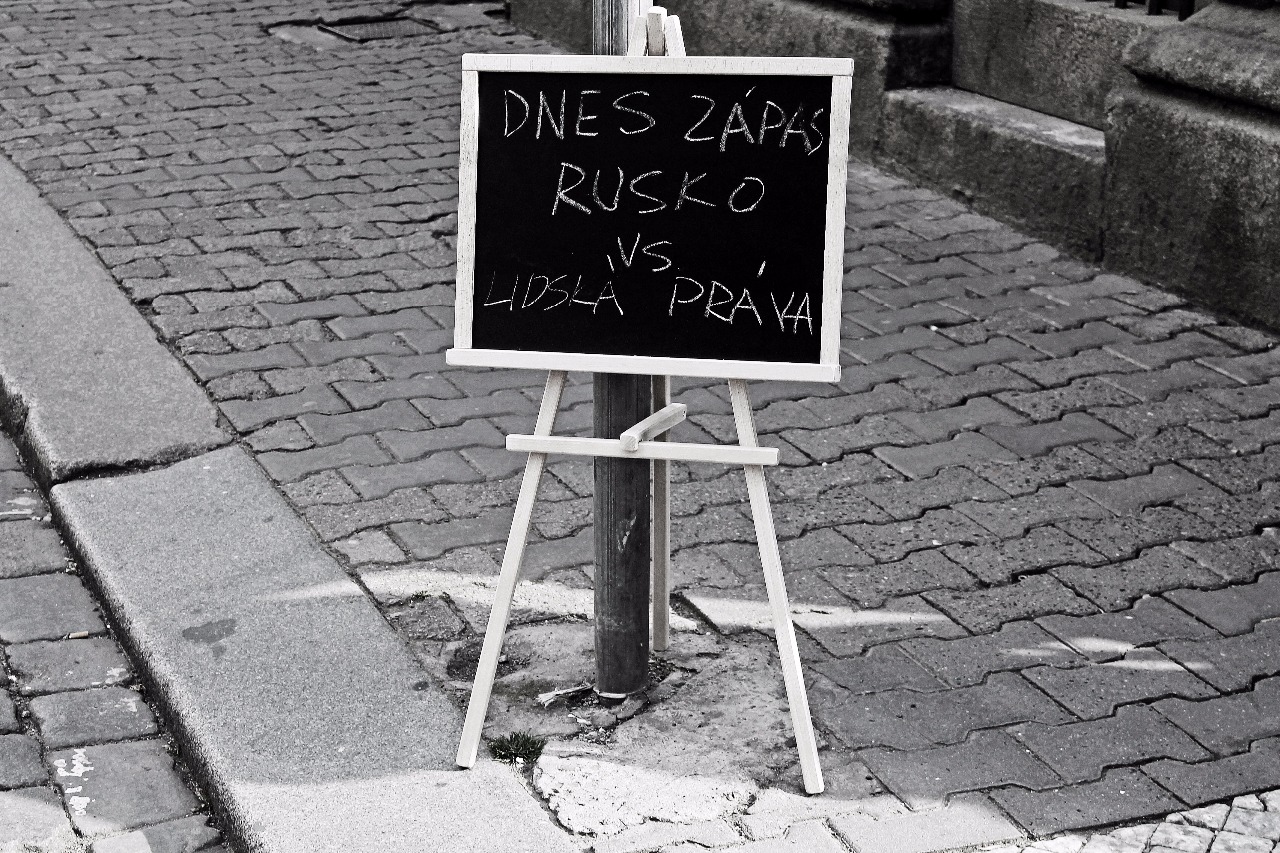 DNES ZÁPAS
RUSKO
VS
LIDSKÁ PRÁVA